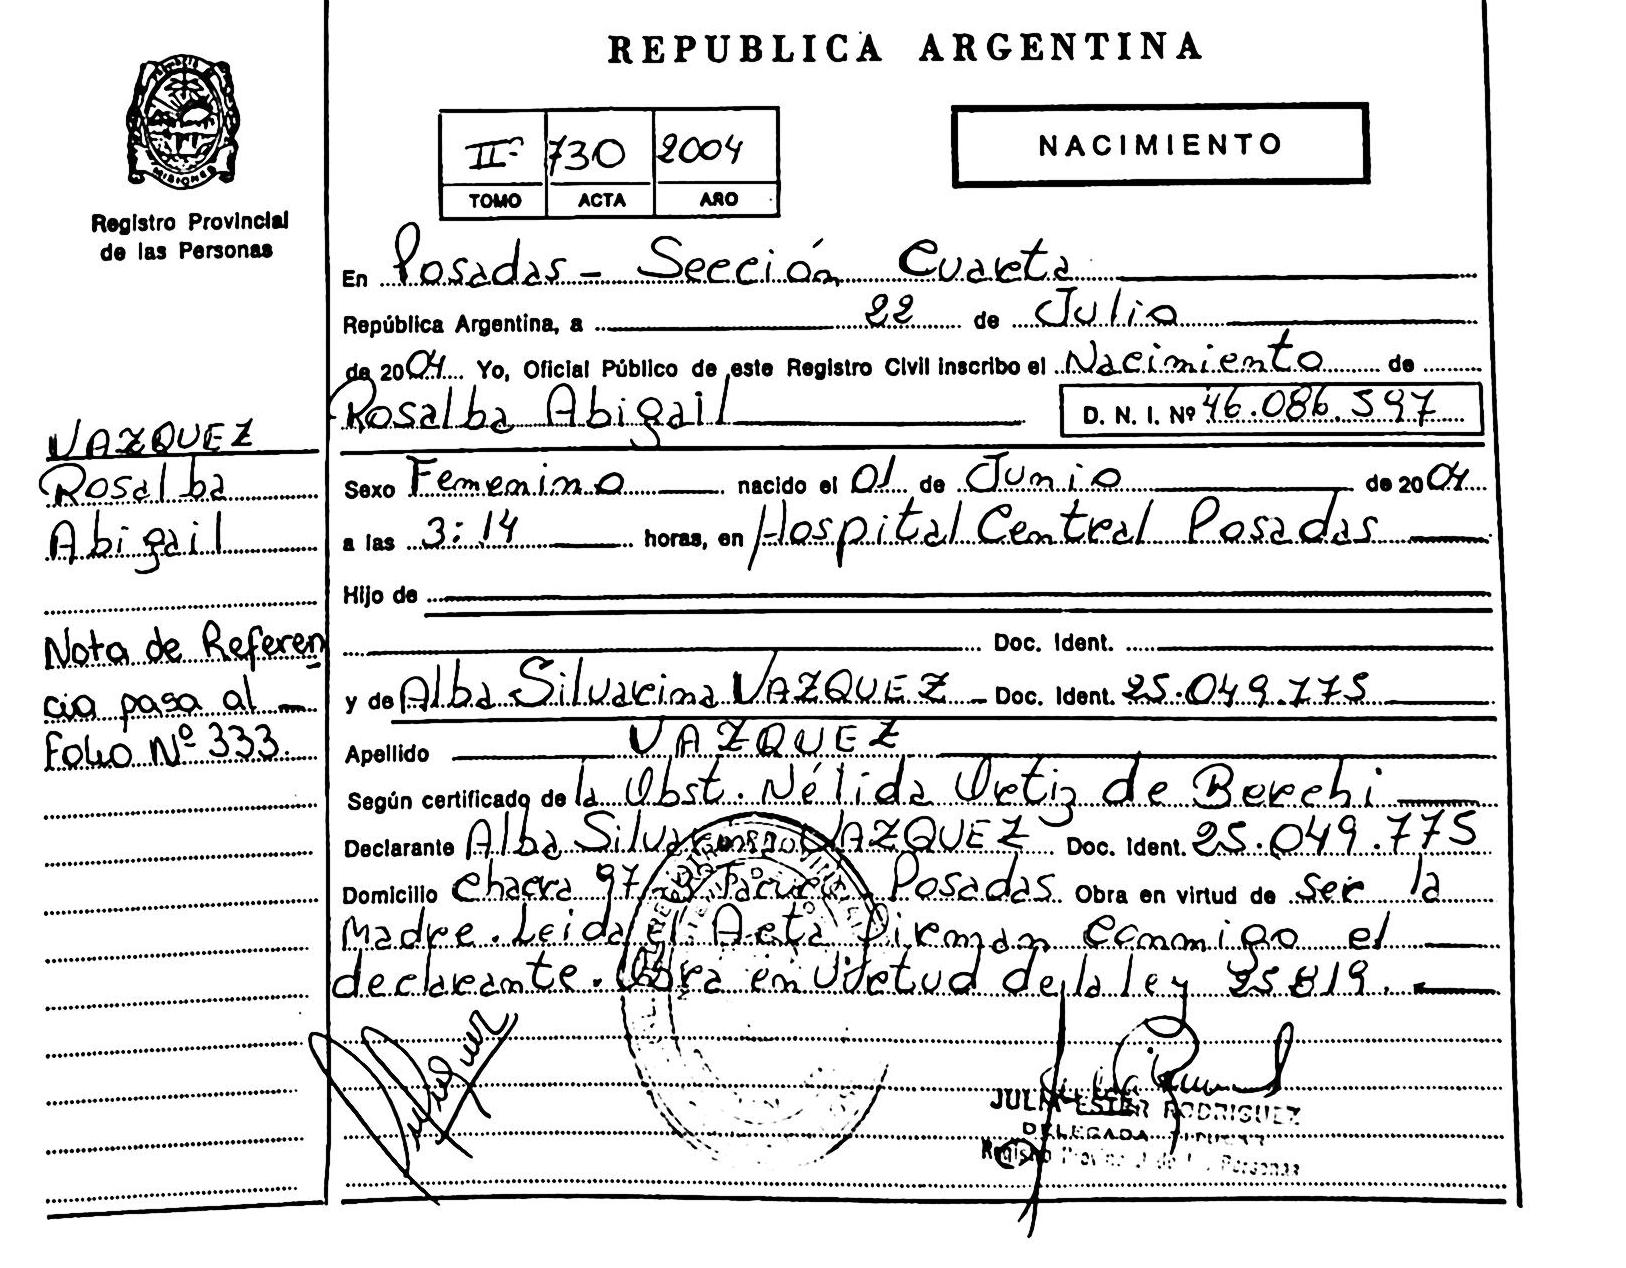 REPUBLICA ARGENTINA
MISIONES
Registro Provincial
de las Personas
IIº 730 2004
TOMO ACTA AÑO
NACIMIENTO
En Posadas - Sección Cuarta
República Argentina, a 22 de Julio
de 2004 Yo, Oficial Público de este Registro Civil inscribo el Nacimiento de
Rosalba Abigail D. N. I. Nº 46.086.597
VAZQUEZ
Rosalba
Abigail
Sexo Femenino nacido el 01 de Junio de 2004
a las 3:14 horas, en Hospital Central Posadas
Hijo de
Doc. Ident.
Nota de Referen
cia pasa al
Folio Nº 333.
y de Alba Silvarina VAZQUEZ - Doc. Ident. 25.049.775
Apellido VAZQUEZ
Según certificado de la Obst. Nélida Ortiz de Berchi
Declarante Alba Silvarina VAZQUEZ Doc. Ident. 25.049.775
Domicilio Chacra 97 Posadas Obra en virtud de ser la
Madre. Leida el Acta Firman conmigo el
declarante. Obra en virtud de la ley 25819.
JULIA ESTER RODRIGUEZ
DELEGADA TITULAR
Registro Provincial de las Personas